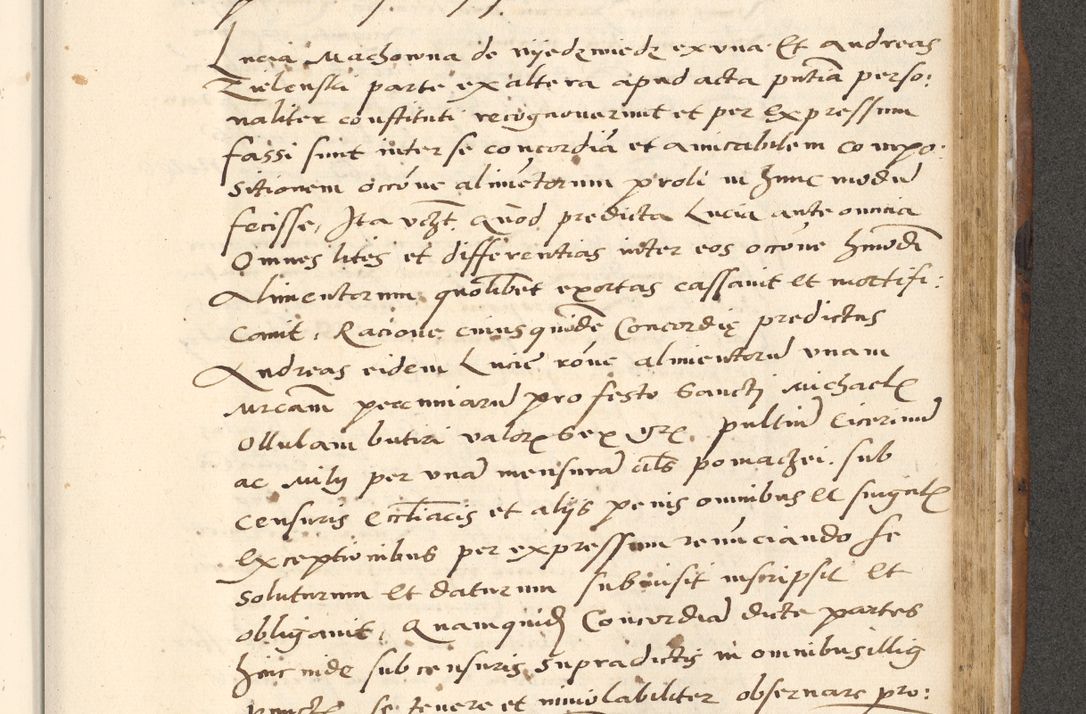 Lucia Machowna de Nyedzwiedz ex vna Et Andreas
Zielenski parte ex altera apud acta pntia perso:
naliter constituti recognouerunt et per Expressum
fassi sunt inter se concordia et amicabilem compo:
sitionem occone alimetorum proli in hunc modu
fecisse, Ita vczt. Quod predicta Lucia ante omnia
Omnes lites et differentias inter eos occone hmodi
Alimentorum quolibet exortas cassauit Et mortifi:
cauit, Racione cuiusquide Concordię predictus
Andreas eidem Lucie rone alimentoru vnam
Mrcam pecuniaru pro festo Sancti Michael
Ollulam butiri valor sex gr. pultiu Cicerium
ac Milij per vna mensura als pomaczei. sub
Censuris Eccliacis et aliis penis omnibus Et singul
Exceptionibus per expressum renunciando se
soluturum Et daturum submisit inscripsit Et
obligauit, Quamquid Concordia dicte partes
hinc inde sub censuris supradictis in omnibus illius
se tenere et inuiolabiliter obseruare pro: